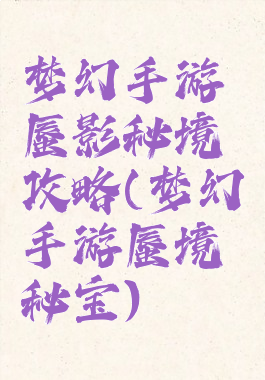 梦幻手游
蜃影秘境
攻略(梦幻
手游蜃境
秘宝)